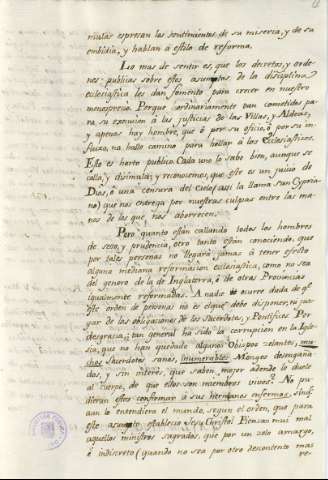 mulas espresan los sentimientos de su miseria, y de su
embidia, y hablan à estilo de reforma.
Lo mas de sentir es, que los decretos, y orde-
nes publicas sobre estos asumptos de la disciplina
eclesiastica les dan fomento para crecer en nuestro
menosprecio. Porque ordinariamente van cometidos pa-
ra su execucion à las justicias de las Villas, y Aldeas,
y apenas hay hombre, que ò por su oficio, ò por su in-
fluxo, no halle camino para hollar à los Eclesiasticos.
Esto es harto publico. Cada uno lo sabe bien, aunque se
calla, y disimula; y reconocemos, que este es un juicio de
Dios, ò una censura del Cielo (assi la llama San Cypria-
no) que nos entrega por nuestras culpas entre las ma-
nos de los que nos aborrecen.
Pero quanto estan callando todos los hombres
de seso, y prudencia, otro tanto estan conociendo, que
por tales personas no llegarà jamas à tener efecto
alguna mediana reformacion eclesiastica, como no sea
del genero de la de Inglaterra, ò de otras Provincias
igualmente reformadas. A nadie ocurre duda de que
este orden de personas no es el que debe disponer, ni juz-
gar de las obligaciones de los Sacerdotes, y Pontifices. Por
desgracia, tan general ha sido la corrupcion en la Igle-
sia, que no han quedado algunos Obispos zelantes, mu-
chos Sacerdotes sanos, inumerables Monges desengaña-
dos, y sin interès, que saben mejor adonde le duele
al cuerpo, de que ellos son miembros vivos? No pu-
dieran estos confirmar à sus hermanos enfermos, sin q.
aun lo entendiera el mundo, segun el orden, que para
este asumpto estableciò Jesu Christo? Piensan mui mal
aquellos ministros sagrados, que por un zelo amargo,
è indiscreto (quando no sea por otro descontento mas
re-